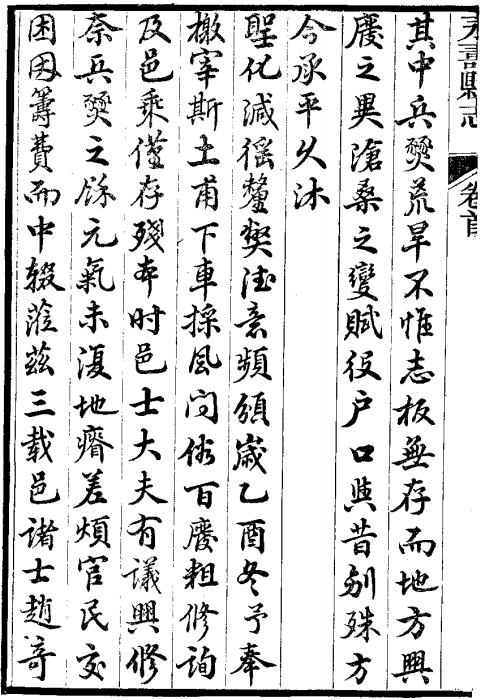 永壽縣志
卷首
其中兵燹荒旱不惟志板無存而地方興
廢之異滄桑之變賦役户口與昔剏殊方
今承平久沐
聖化減徭釐弊德意頻頒歲乙酉冬予奉
檄宰斯土甫下車採風问俗百廢粗修詢
及邑乘僅存殘本时邑士大夫有議興修
奈兵燹之餘元氣未復地瘠差煩官民交
困因籌費而中辍蒞兹三载邑諸士趙